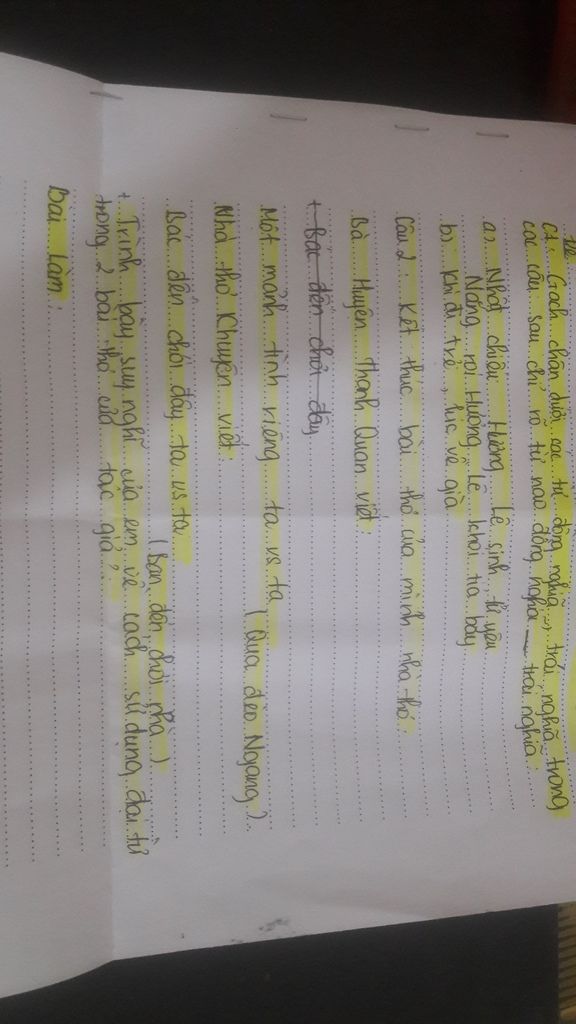 C1: Gạch chân dưới các từ đồng nghĩa → trái nghĩa trong
các câu sau chỉ rõ từ nào đồng nghĩa — trái nghĩa.
a) Nhật chiếu Hương Lê sinh tử yên
Nắng rọi Hương Lê khói tía bay
b) Khi đi trẻ, lúc về già
Câu 2. Kết thúc bài thơ của mình nhà thơ.
Bà Huyện Thanh Quan viết:
+ Bác đến chơi đây
Một mảnh tình riêng ta vs ta
( Qua đèo Ngang ).
Nhà thơ Khuyến viết:
Bác đến chơi đây ta vs ta
( Bạn đến chơi nhà )
+ Trình bày suy nghĩ của em về cách sử dụng đại từ
trong 2 bài thơ của tác giả?
Bài làm: